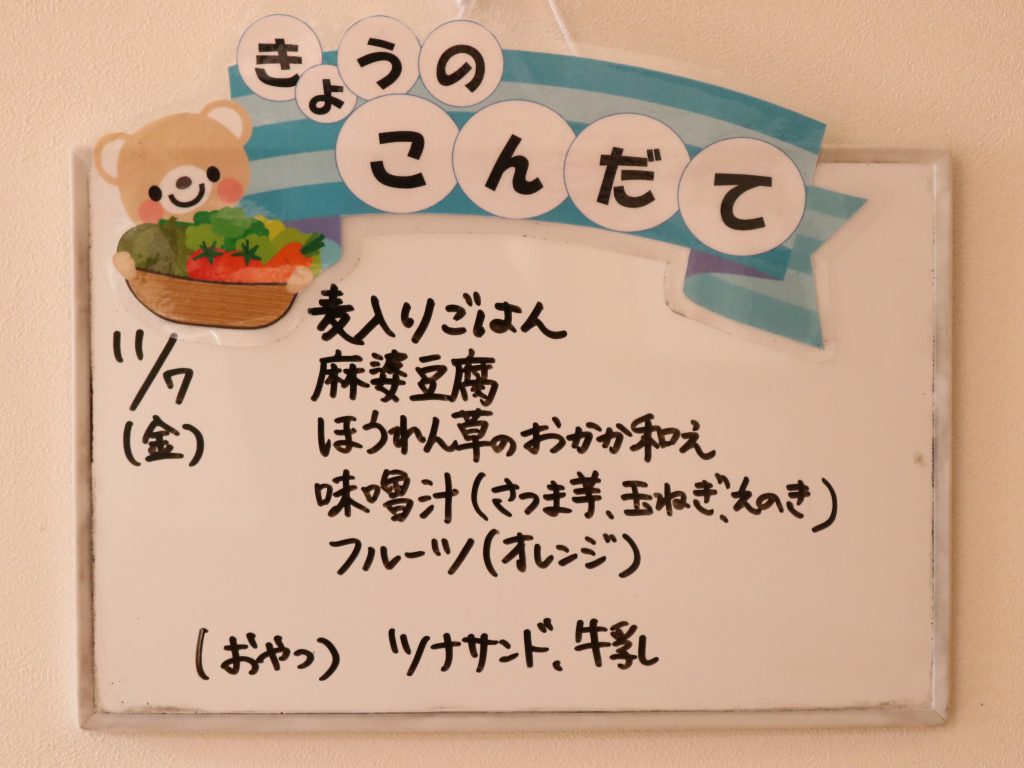 きょうの
こんだて
11/7
(金)
麦入りごはん
麻婆豆腐
ほうれん草のおかか和え
味噌汁(さつま芋、玉ねぎ、えのき)
フルーツ(オレンジ)
(おやつ) ツナサンド、牛乳